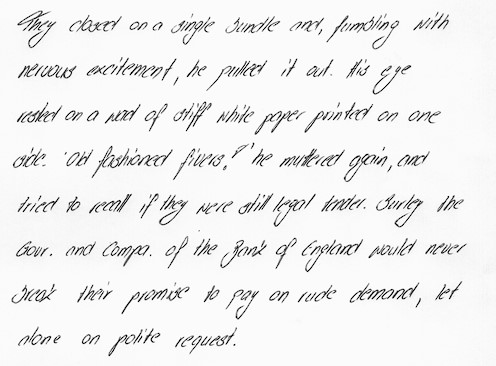 They closed on a single bundle and, fumbling with
nervous excitement, he pulled it out. His eye
rested on a wad of stiff white paper printed on one
side. 'Old fashioned fivers,' he muttered again, and
tried to recall if they were still legal tender. Surley the
Gour. and Compa. of the Bank of England would never
break their promise to pay on rude demand, let
alone on polite request.